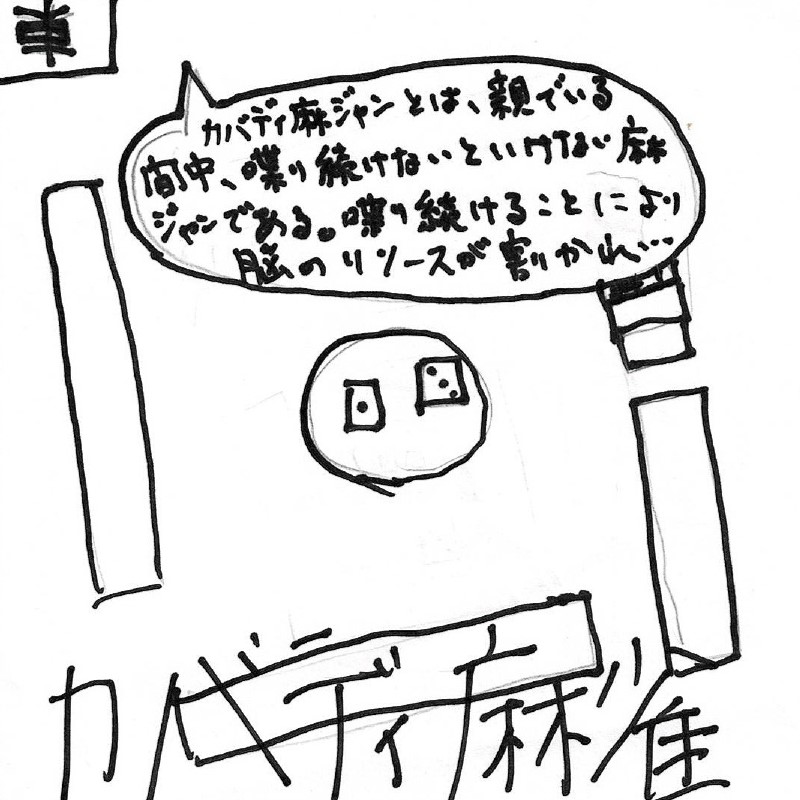 東
カバディ麻ジャンとは、親でいる
間中、喋り続けないといけない麻
ジャンである。喋り続けることにより
脳のリソースが割かれ…
カバディ麻雀